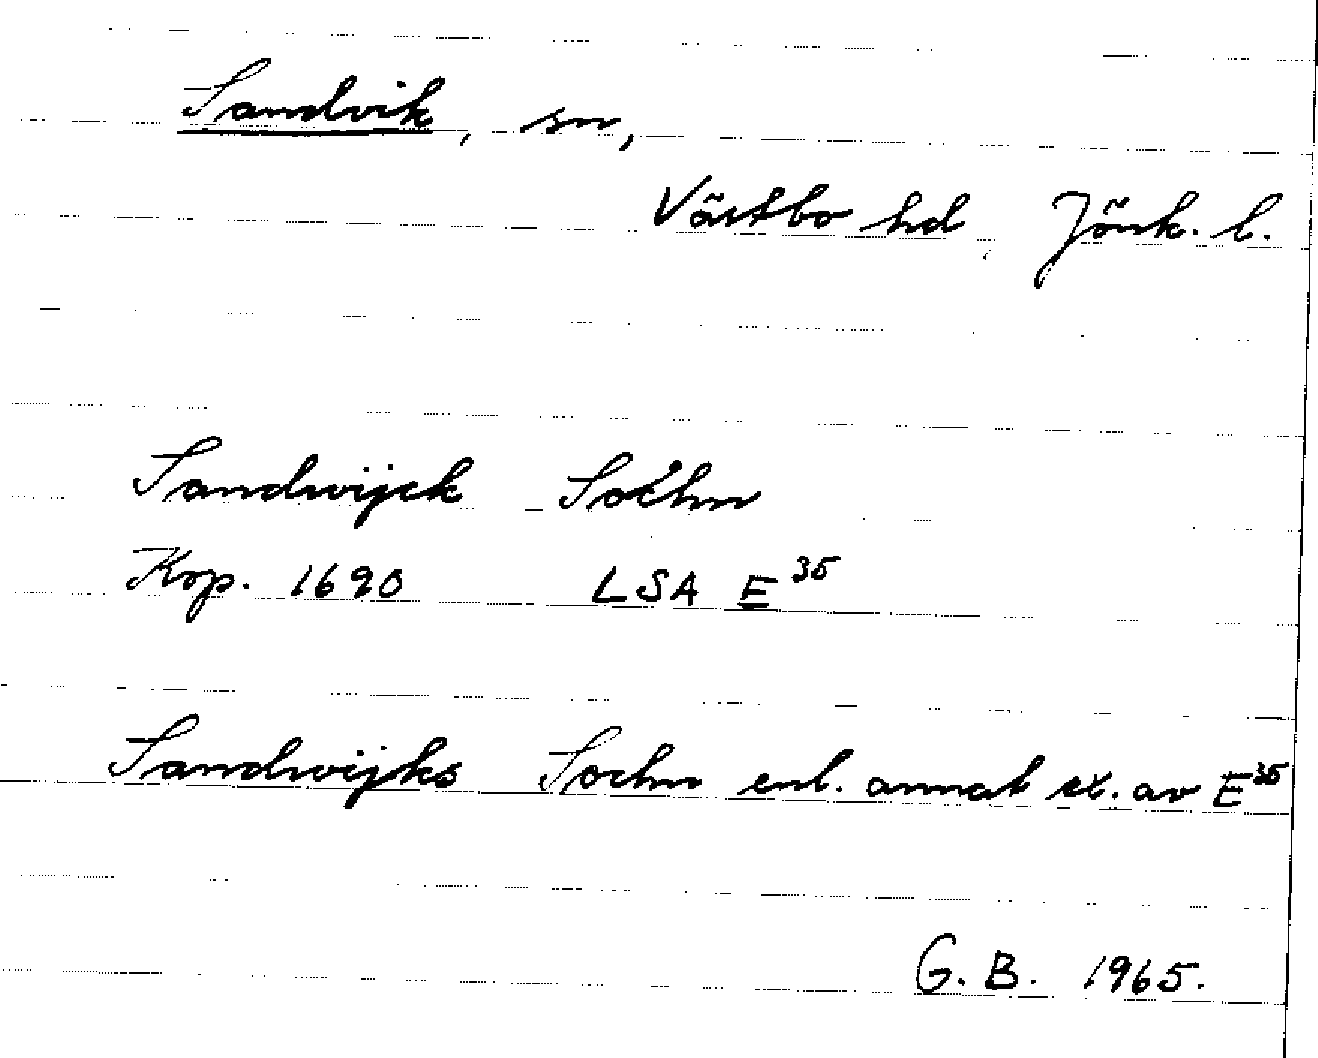 Sandvik, sn,
Västbo hd, Jönk. l.
Sandwijck Sochn
Kop. 1690 LSA E 35
Sandwijks Sochn enl. annat ex. av E 35
G. B. 1965.